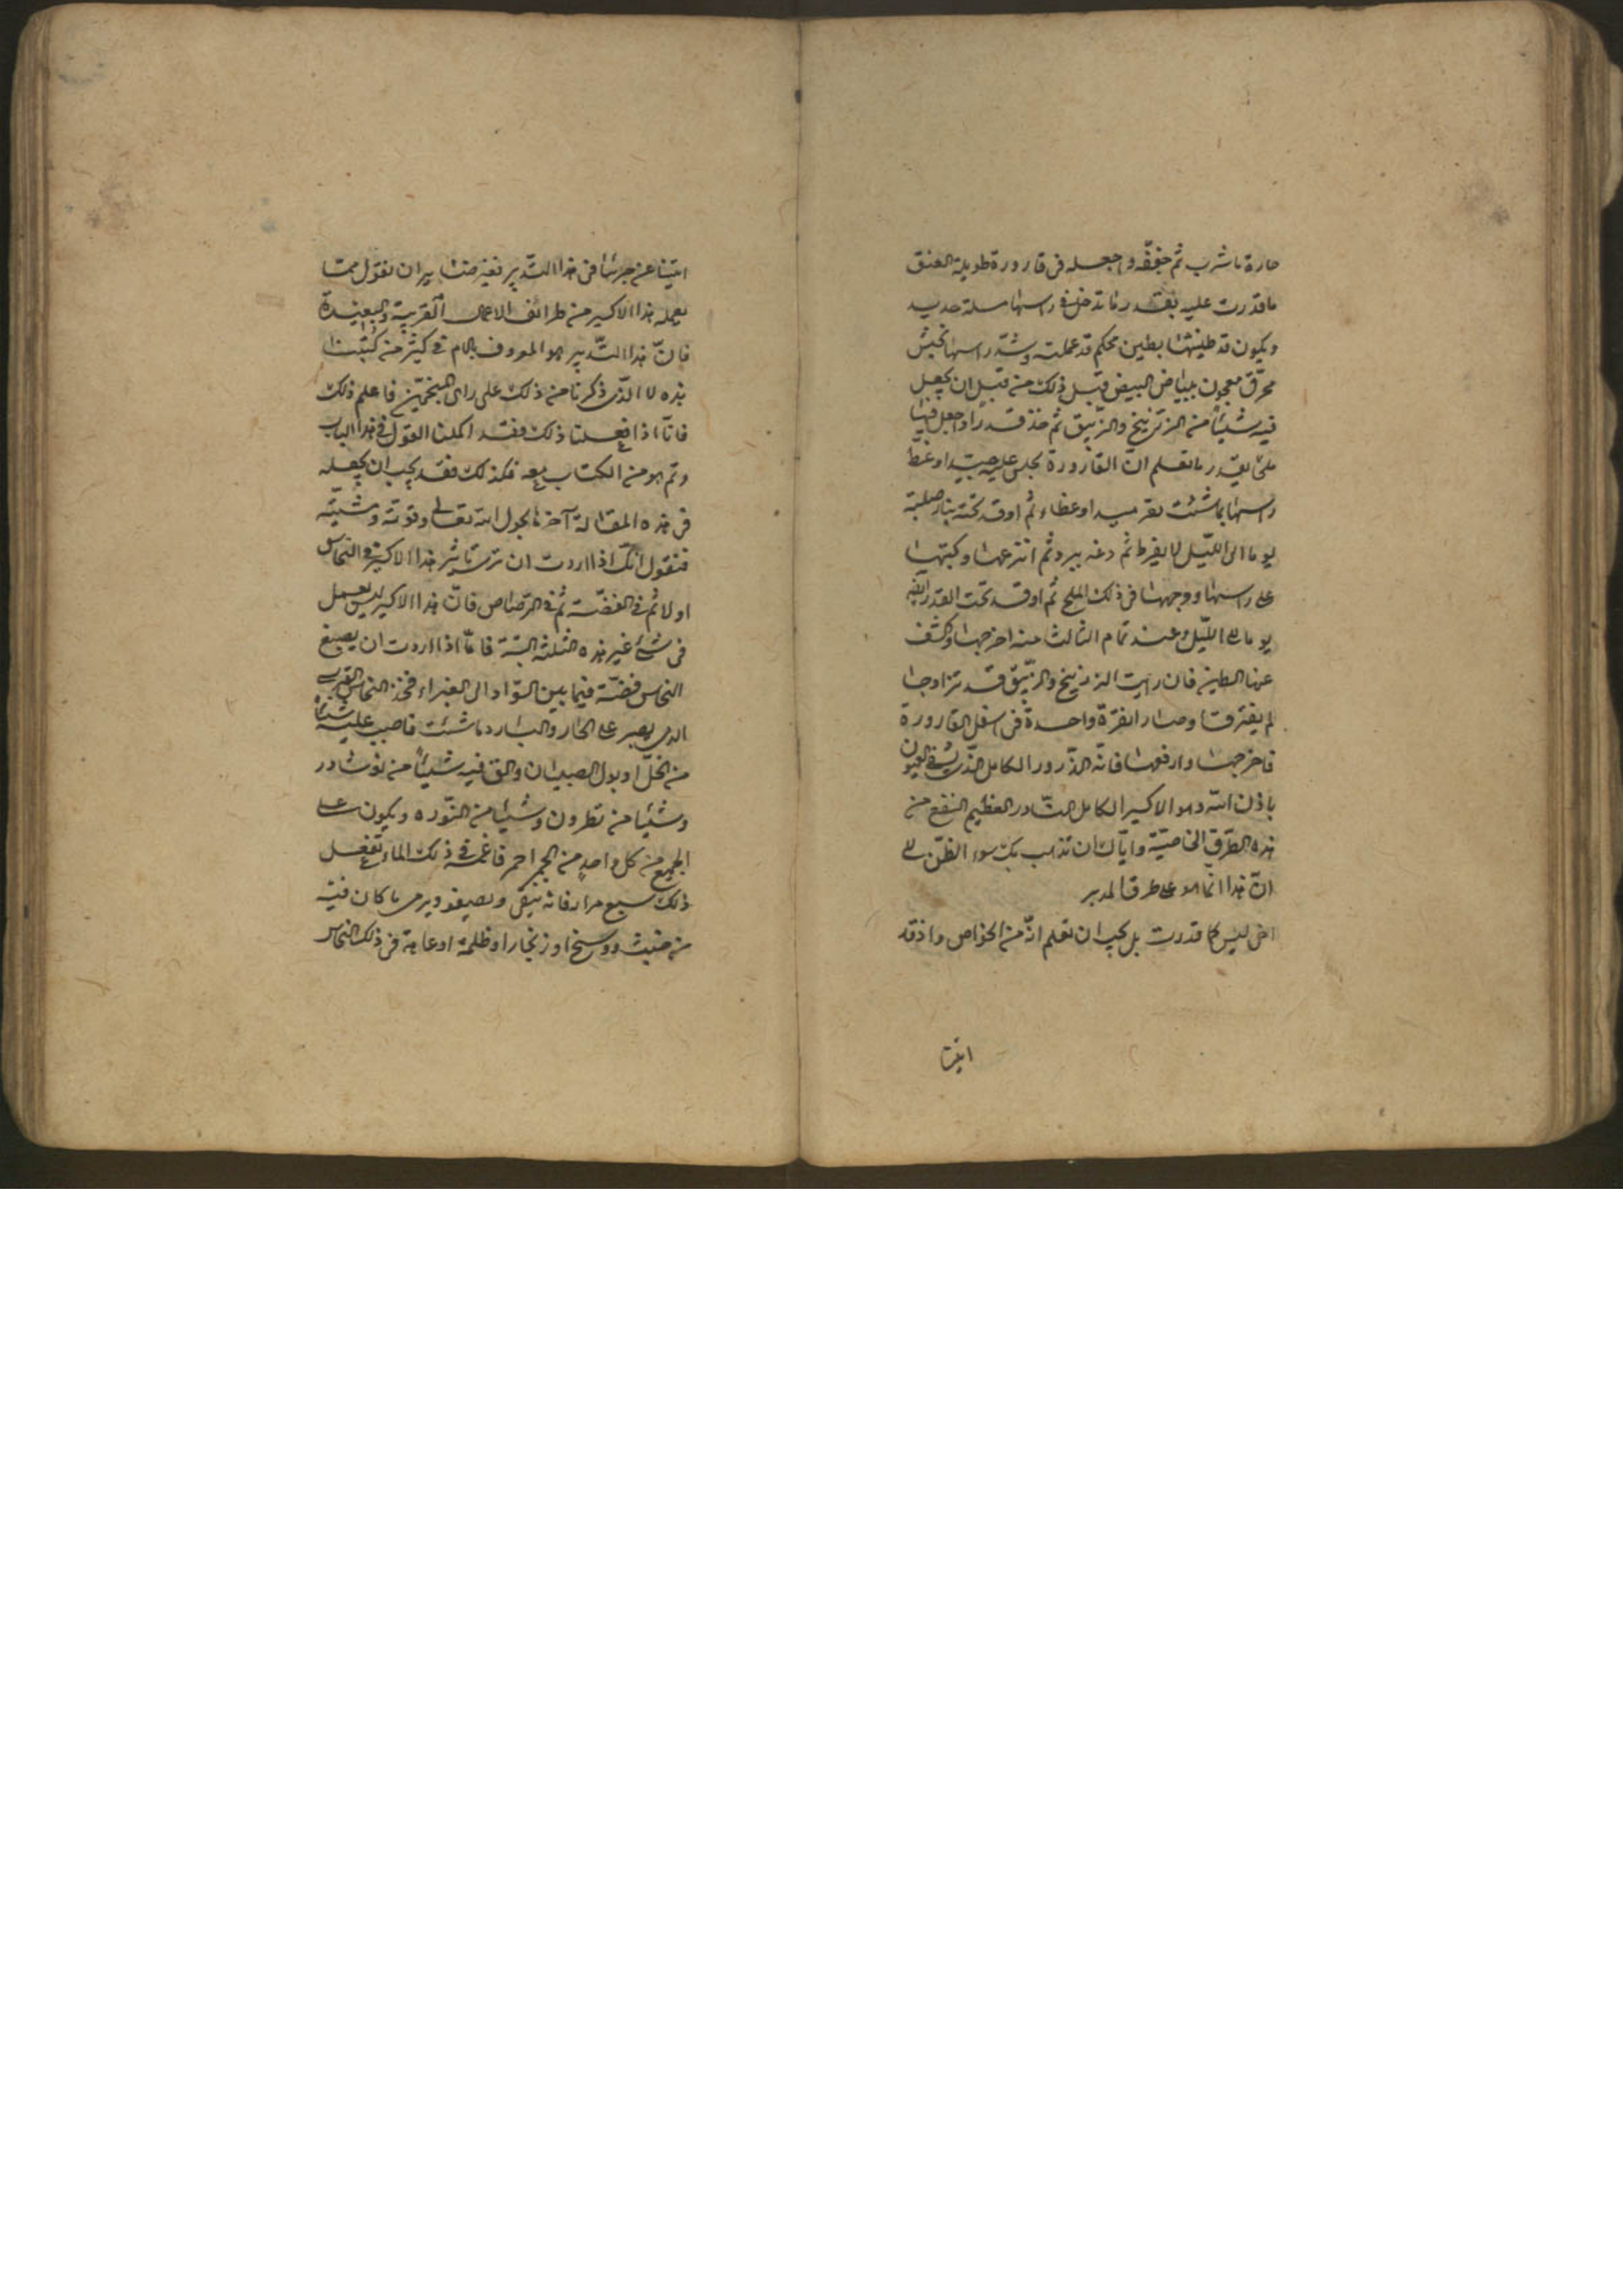 حارة ما شرب ثم جففه واجعله فى قارورة طويلة العنق
ما قدرت عليه بقدر ما تدخل فى راسها مسلة حديد
ويكون قد طينتها بطين محكم قد عملته وشد راسها بخيش
محرق معجون ببياض البيض قبل ذلك من قبل ان يجعل
فيه شيئاً من الزرنيخ والزيبق ثم خذ قدرا واجعل فيها
ملئ بقدر ما تعلم انّ القارورة تجلس عليه جيدا وغط
راسها بما شئت بقرميد او غطاء ثم اوقد تحته بنار صلبة
يوما الى الليل لا يفرط ثم دعه يبرد ثم انتزعها وكبها
على راسها ووجهها فى ذلك الملح ثم اوقد تحت القدر
يوما الى الليل وعند تمام الثالث منه اخرجها وكشف
عنها الطين فان رايت الزرنيخ والزيبق قد تزاوجا
لم يفترقا وصارا نقرة واحدة فى اسفل القارورة
فاخرجها وارفعها فانه الذرور الكامل الذى
باذن الله وهو الاكسير الكامل النادر العظيم النفع من
هذه الطرق الخاصية واياك ان تذهب بك سوء الظن الى
انّ هذا انما هو على طرق المدبر
اعنى ليس كما قدرت بل يجب ان تعلم انّه من الخواص واذ قد
اتينا
اتينا عن جرشا فى هذا التدبير نفيرضنا يران نقول مما
يعمله هذا الاكسير من طرائف الاعمال القريبة والبعيدة
فانّ هذا التدبير هو المعروف بالام فى كثير من كتبنا
هذه لا الذى ذكرنا من ذلك على راى المنجمين فاعلم ذلك
فانّا اذا فعلنا ذلك فقد اكملنا القول فى هذا الباب
وتم هو من الكتاب بعد فكذلك فقد يجب ان يجعله
فى هذه المقالة آخرها بحول الله تعالى وقوته ومشيّته
فنقول انّك اذا اردت ان ترى تاثير هذا الاكسير فى النحاس
اولا ثم فى الفضّة ثم فى الرصاص فانّ هذا الاكسير ليس يعمل
فى شئ غير هذه الثلثة البتة فامّا اذا اردت ان يصبغ
النحاس فضّة فيما بين السواد الى الغبراء فخذ النحاس
الذى يصبر على الحار والبارد ما شئت فاصبب عليه شيئا
من الخلّ او بول الصبيان والق فيه شيئاً من نوشادر
وشيئا من نطرون وشيئا من النوره ويكون على
الجميع من كل واحد من الجمر احمر فاغمسه فى ذلك الماء تفعل
ذلك سبع مرار فانه ينقى ويصفو ويرمى ما كان فيه
من خبث ووسخ او زنجار او ظلمة او عاهة فى ذلك النحاس